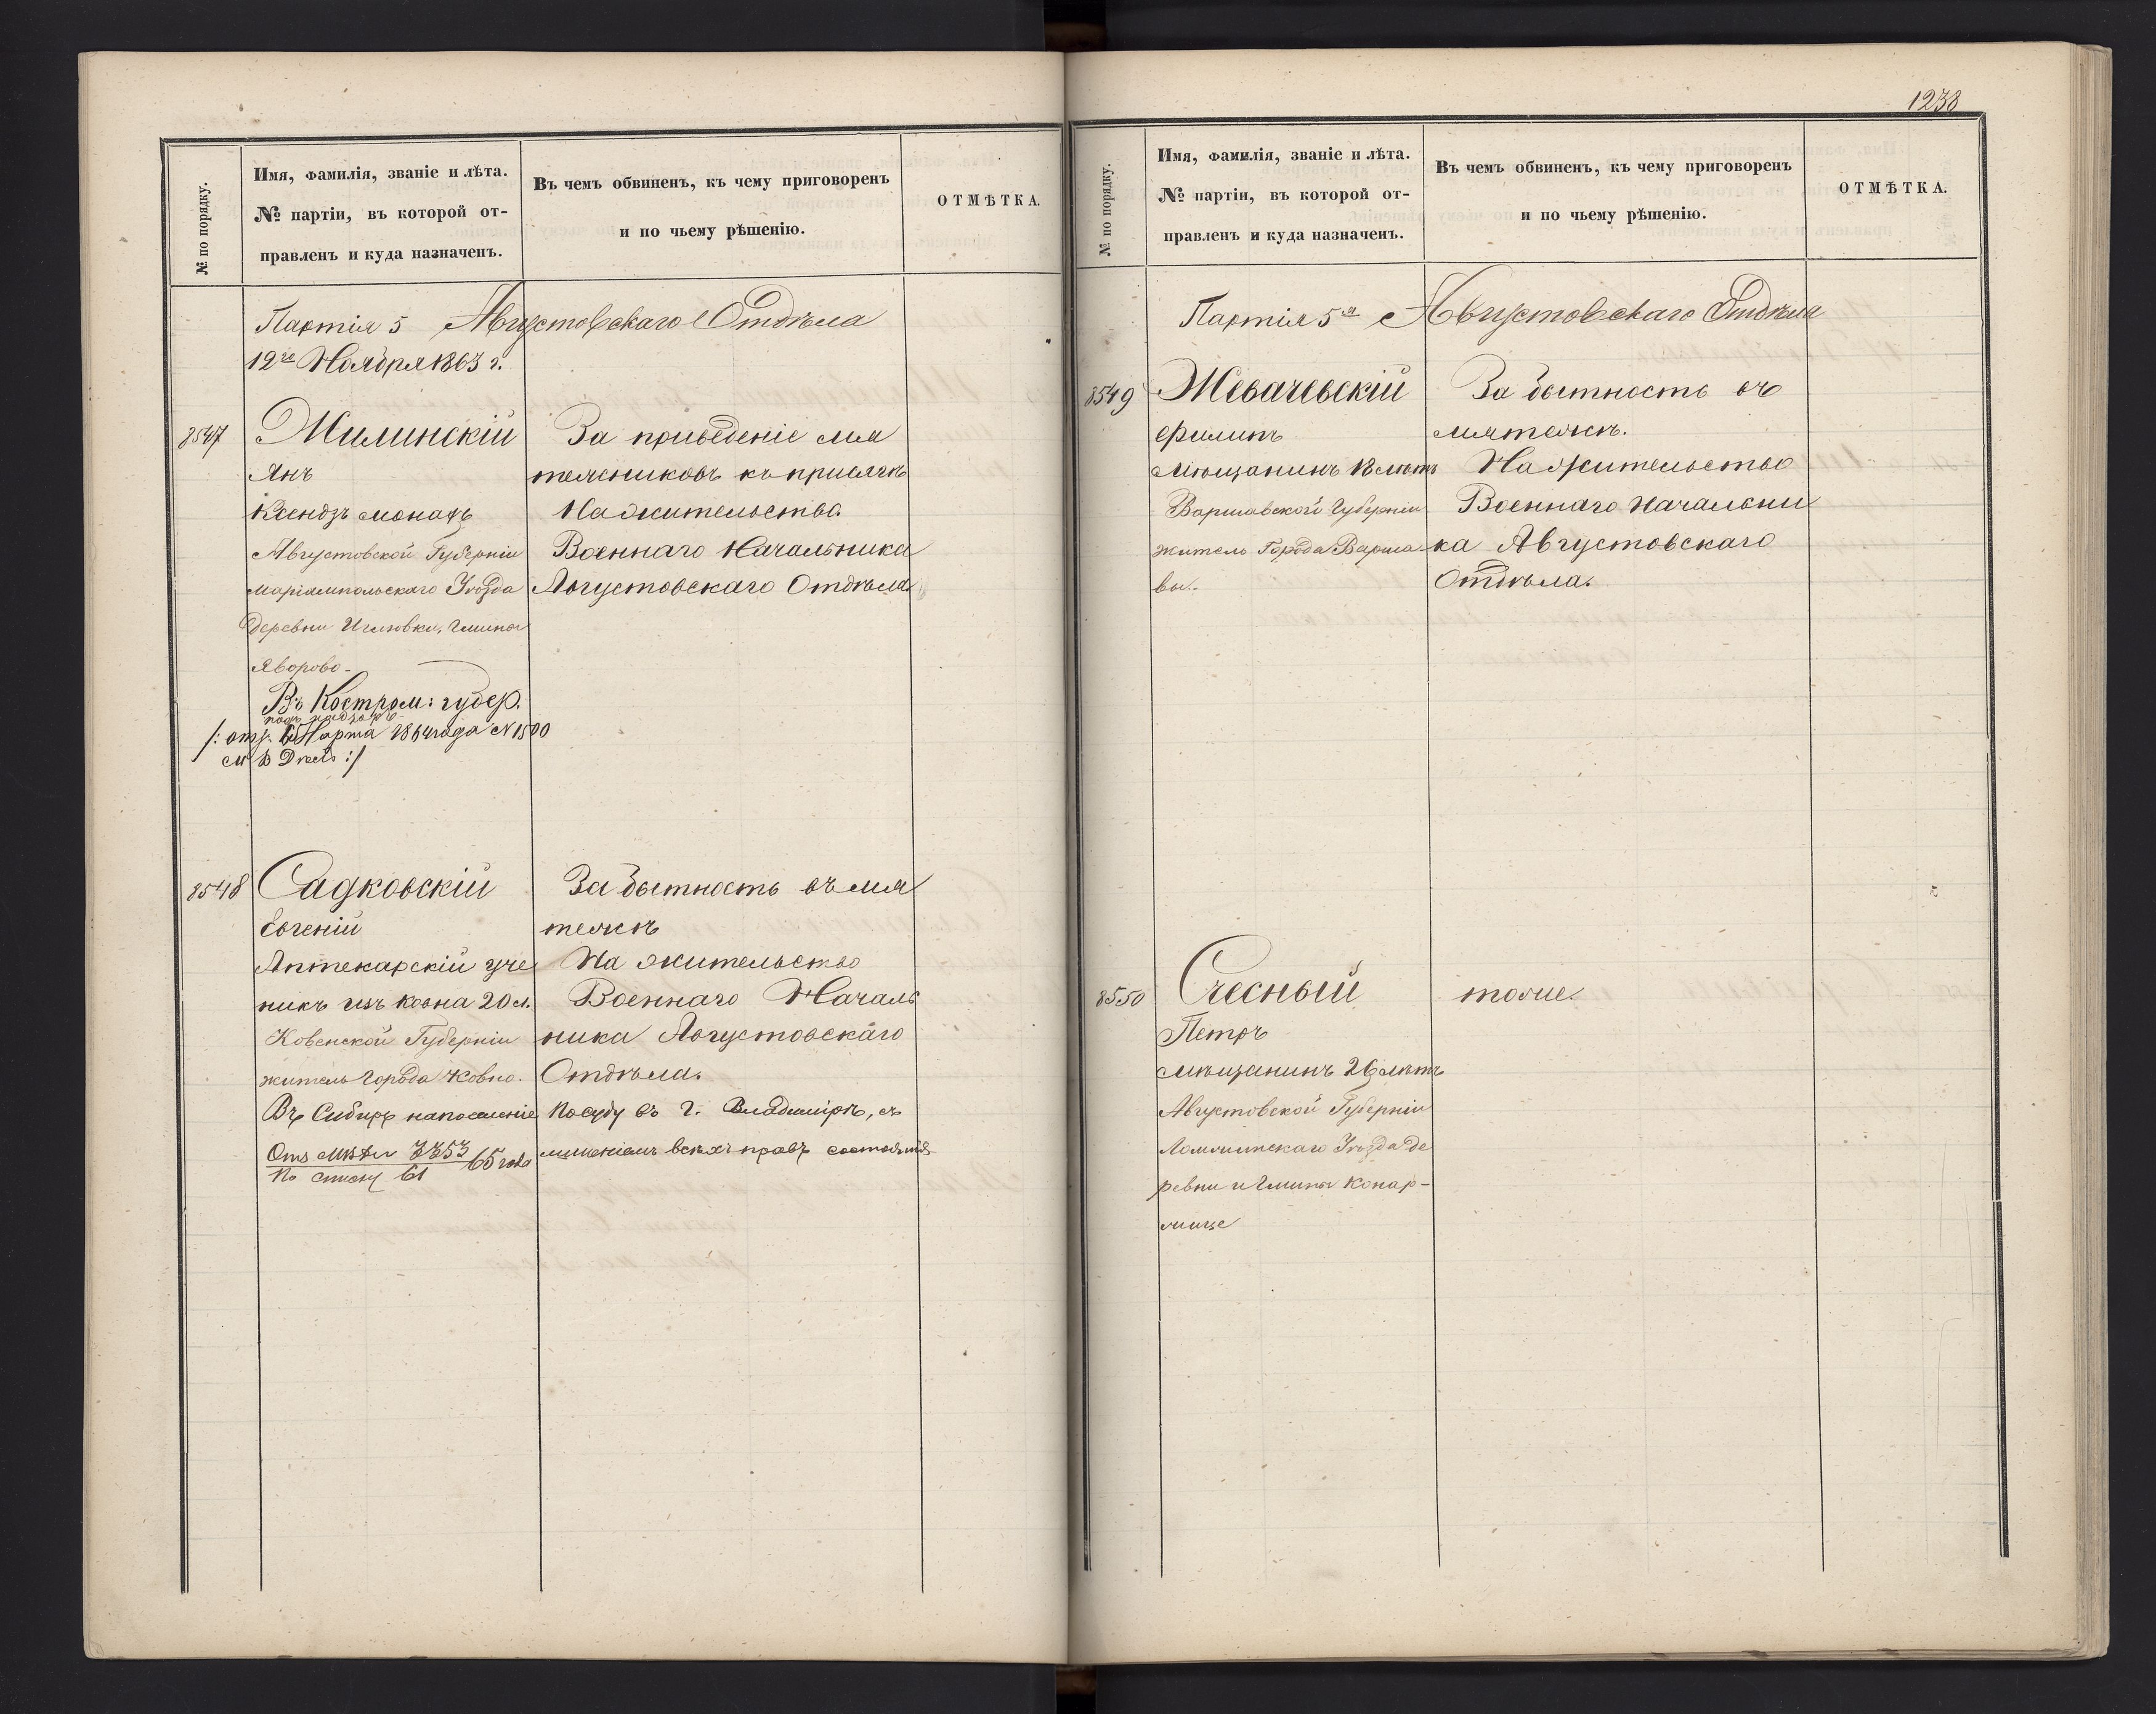 № по порядку.
Имя, фамилія, званіе и лѣта.
№ партіи, въ которой от-
правленъ и куда назначенъ.
Въ чемъ обвиненъ, къ чему приговоренъ
и по чьему рѣшенію.
ОТМѢТКА.
Партія 5 Августовскаго Отдѣла
12го Ноября 1863 г.
8547
Жилинскій
Янъ
Ксендзъ монахъ
Августовской Губерніи
Маріампольскаго Уѣзда
деревни Иглювки, Гмина
Яворово
Въ Костром: губер.
подъ надзоръ
/: отз. 6 Марта 1864 года N 1500
М В Дѣлъ :/
За приведеніе мя
тежниковъ къ присягѣ
На жительство
Военнаго Начальника
Августовскаго Отдѣла.
8548
Садковскій
Евгеній
Аптекарскій уче
никъ изъ Ковна 20 л.
Ковенской Губерніи
житель Города Ковно.
Въ Сибирь на поселеніе
65 года
По списку 61
За бытность въ мя
тежѣ
На жительство
Военнаго Началь
ника Августовскаго
Отдѣла.
По суду въ г. Владимірѣ, съ
лишеніемъ всѣхъ правъ состоянія
1238
№ по порядку.
Имя, фамилія, званіе и лѣта.
№ партіи, въ которой от-
правленъ и куда назначенъ.
Въ чемъ обвиненъ, къ чему приговоренъ
и по чьему рѣшенію.
ОТМѢТКА.
Партія 5я Августовскаго Отдѣла
8549
Жевачевскій
Филипъ
Мѣщанинъ 18 лѣтъ
Варшавской Губерніи
житель Города Варша
вы.
За бытность въ
мятежѣ.
На жительство
Военнаго Начальни
ка Августовскаго
Отдѣла.
8550
Счесный
Петръ
Мѣщанинъ 26 лѣтъ
Августовской Губерніи
Ломжинскаго Уѣзда де
ревни и Гмины Конар-
жице
тоже.